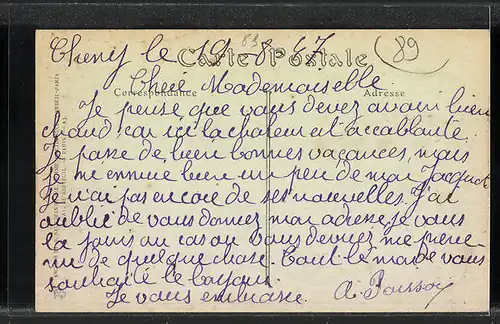 Cheny le 19-8-47
89
Carte Postale
Chère Mademoiselle
Correspondance
Adresse
Je pense que vous devez avoir bien
chaud car ici la chaleur est accablante.
Je passe de bien bonnes vacances, mais
je me ennuie bien un peu de mon Jacquot
Je n'ai pas encore de ses nouvelles. J'ai
oublié de vous donner mon adresse je vous
la joins au cas ou vous devriez me
de quelque chose. Tout le monde vous
souhaite le bonjour.
Je vous embrasse.